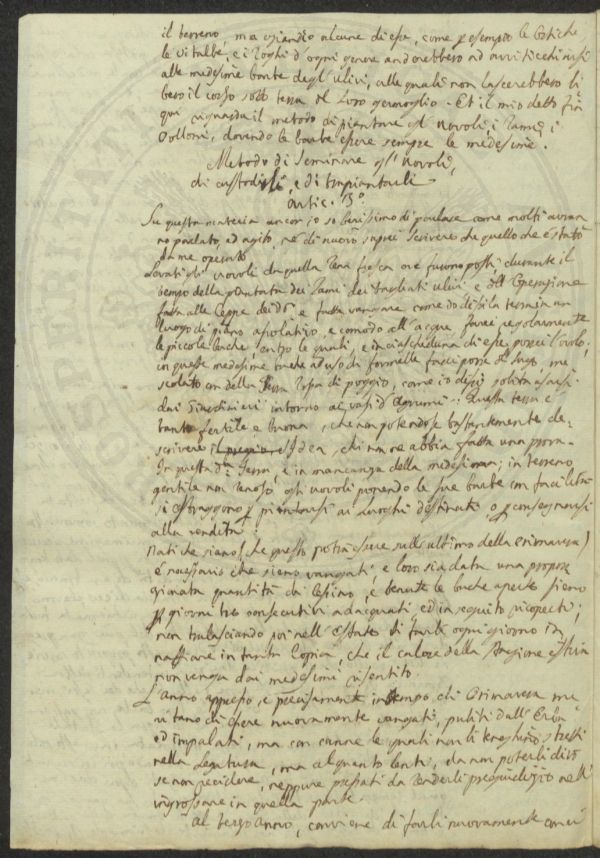 il terreno, ma eziandio alcune di esse, come p esempio le Ortiche
le vitalbe, e i Roghi d'ogni genere anderebbero ad avviticchiarsi
alle medesime barbe degl'ulivi, alle quali non lascerebbero li
bero il corso sotto terra del loro germoglio. Et il mio detto fin
qui riguarda il metodo di piantare gl'uovoli, i Rami, i
Polloni, dovendo le barbe essere sempre le medesime.
Metodo di Seminare gl'uovoli,
di custodirli, e di trapiantarli
Artic. 3º
Su questa materia ancor io so benissimo di parlare come molti avran
no parlato, ed agito, né di nuovo saprei scrivere che quello che è stato
da me operato
Levati gl'uovoli da quella Terra fresca ove furono posti durante il
tempo della piantata dei Rami dei tagliati ulivi e dell'Operazione
fatta alle Ceppe dei
e fatta vangare come
luogo di piano, e comodo all'acque, farei regolarmente
le piccole buche entro le quali, e in ciascheduna di esse porrei l'uovolo;
in queste medesime buche ad uso di formelle farei porre del sugo, me
scolato con della Terra Rossa di poggio, come io dissi solita usarsi
dai Giardinieri intorno ai vasi d'Agrumi. Questa terra è
tanto fertile e buona, che non potendosi bastantemente de=
scrivere Idea, chi non ne abbia fatta una prova.
In questa d.ª Terra, e in mancanza della medesima; in terreno
gentile non tenoso gli uovoli ponendo le sue barbe con facilità
si estraggono p piantarsi ai luoghi destinati, o p consegnarsi
alla vendita.
Nati che siano (che questo potrà essere sull'ultimo della Primavera)
è necessario che sieno vangati, e loro sia data una propor
zionata quantità di Concime, e tenute le buche aperte sieno
p giorni tre consecutivi adacquati ed in seguito ricoperti;
non tralasciando poi nell'Estate di farli ogni giorno in
naffiare in tanta Copia, che il calore della Stagione estiva
non venga dai medesimi risentito.
L'anno appresso e precisamente in tempo di Primavera me
ritano di essere nuovamente vangati, puliti dall'Erba
ed impalati, ma con canne le quali non li tenghino stretti
nella Legatura, ma alquanto lenti, da non poterli
se non recidere, neppure pressati da renderli pregiudizio nell'
ingrossare in quella parte.
Al terzo anno, conviene di farli nuovamente